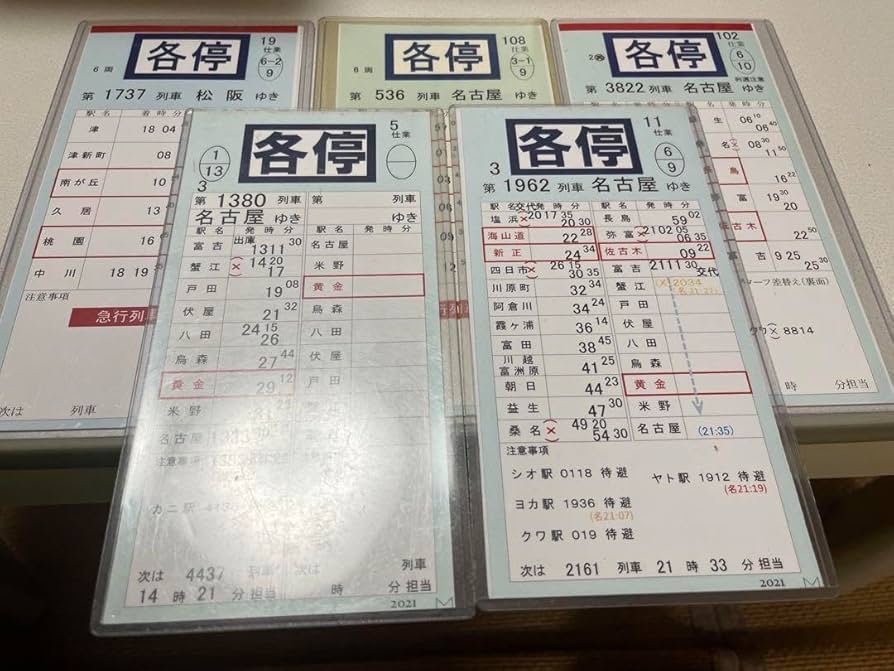 19
仕業
6-2
9
各停
6両
第 1737 列車 松阪 ゆき
駅名 着時分
津 18 04
津新町 08
南が丘 10
久居 13
桃園 16
中川 18 19
注意事項
急行列
次は 列車
108
仕業
3-1
9
各停
6両
第 536 列車 名古屋 ゆき
102
仕業
6
10
各停
列選注意
第 3822 列車 名古屋 ゆき
発時分
生 06 10
06 40
名 (×) 08 30
11 50
島 16 22
富 19
20 50
佐古木
富吉 9 25
25 30
差替え(裏面)
クワ(×) 8814
時 分担当
5
仕業
1
13
3
各停
第 1380 列車
名古屋 ゆき
第 列車
ゆき
駅名 発時分 駅名 発時分
富吉 出庫 1311 30 名古屋
蟹江 (×) 14 20 17 米野
戸田 19 08 黄金
伏屋 21 32 烏森
八田 24 15 26 八田
烏森 27 44 伏屋
黄金 29 12 戸田
米野
名古屋
注意事項
カニ駅
次は 4437 列車 列車
14 時 21 分担当 時 分担当
2021
11
仕業
6
9
3
各停
第 1962 列車 名古屋 ゆき
駅名 交代 発時分 駅名 発時分
塩浜 (×) 20 17 35 20 30 長島 59 02
海山道 22 28 弥富 (×) 21 02 05 06 35
新正 24 34 佐古木 09 22
四日市 (×) 26 15 30 35 富吉 2111 30 交代
川原町 32 34 蟹江 (×) 2034 (名21:27)
阿倉川 34 24 戸田
霞ヶ浦 36 14 伏屋
富田 38 45 八田
川越富洲原 41 25 烏森
朝日 44 23 黄金
益生 47 30 米野
桑名 (×) 49 20 54 30 名古屋 (21:35)
注意事項
シオ駅 0118 待避 ヤト駅 1912 待避
(名21:19)
ヨカ駅 1936 待避
(名21:07)
クワ駅 019 待避
次は 2161 列車 21 時 33 分担当
2021